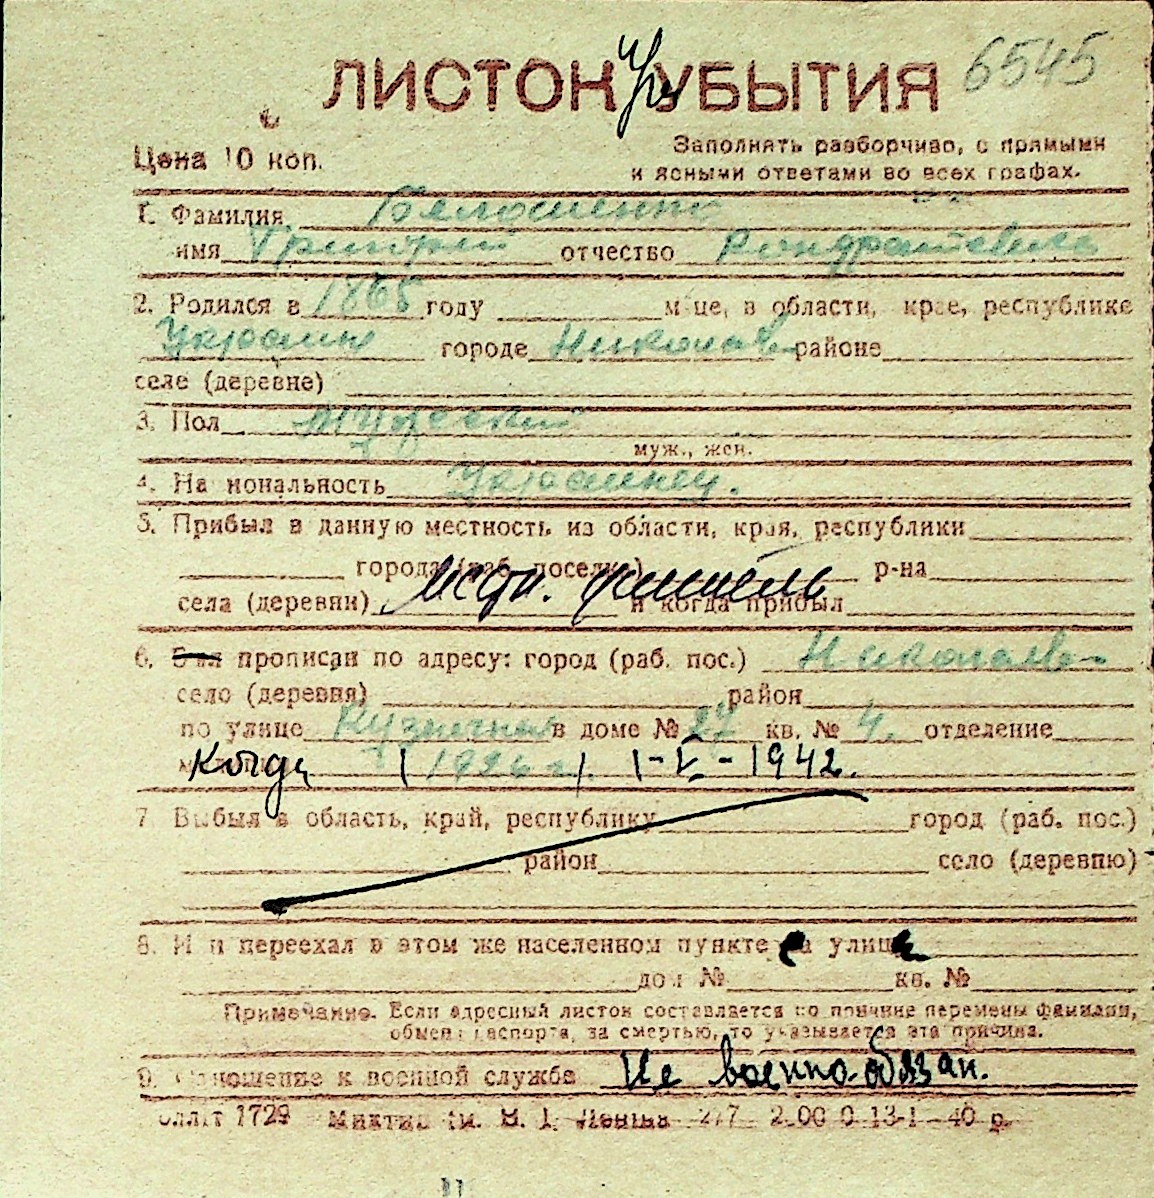 ЛИСТОК УБЫТИЯ 6545
Цена 10 коп.
Заполнять разборчиво, с прямыми
и ясными ответами во всех графах.
1. Фамилия Белошенко
имя Григорий отчество Кондратьевич
2. Родился в 1865 году м-це, в области, крае, республике
Украины городе Николаев районе
селе (деревне)
3. Пол мужской
муж., жен.
4. Национальность Украинец.
5. Прибыл в данную местность из области, края, республики
города (раб. поселка) р-на
села (деревни) местн. житель и когда прибыл
6. Был прописан по адресу: город (раб. пос.) Николаев
село (деревня) район
по улице Кузнечная в доме № 27 кв. № 4. отделение
Когда (1926 г.) 1-V-1942.
7 Выбыл в область, край, республику город (раб. пос.)
район село (деревню)
8. И и переехал в этом же населенном пункте на улице
дом № кв. №
Примечание. Если адресный листок составляется по причине перемены фамилии,
обмена паспорта, за смертью, то указывается эта причина.
9. Отношение к военной службе Не военно-обязан.
1729 Ленина 277 2.00 0 13-1 -40 р.